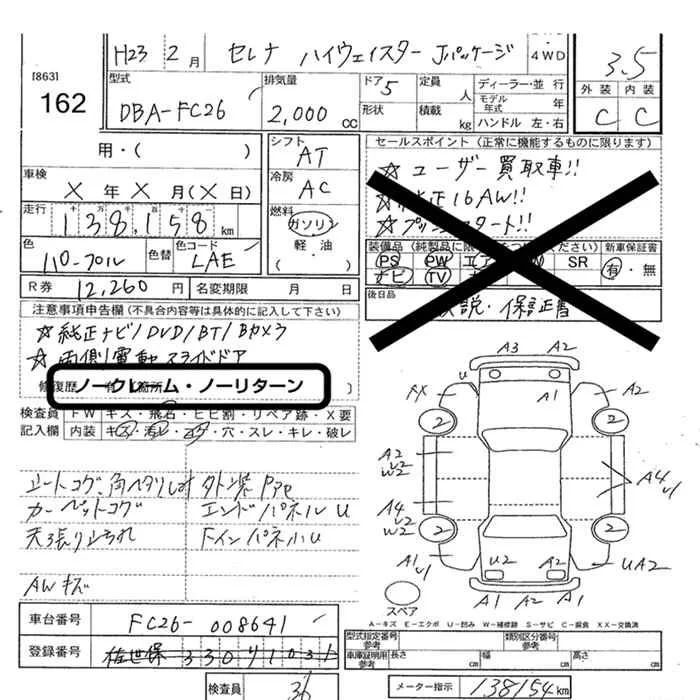 H23 2月 セレナ ハイウェイスター Jパッケージ 4WD 3.5
[863] 162
型式 DBA-FC26 排気量 2,000 cc ドア 5 形状 定員 人 積載 kg ディーラー・並行 モデル年式 年 ハンドル 左・右 外装 C 内装 C
用・( ) シフト AT
セールスポイント (正常に機能するものに限ります)
車検 X年X月(X日) 冷房 AC
☆ユーザー買取車!!
☆純正16AW!!
☆プッシュスタート!!
走行 138,158 km 燃料 ガソリン 軽油・( )
色 色替 色コード LAE
装備品 PS PW SR ナビ TV 新車保証書 有・無
R券 12,260円 名変期限 月 日
後日品 取説・保証書
注意事項申告欄(不具合内容等は具体的に記入して下さい)
☆純正ナビ/DVD/BT/Bカメラ
☆両側電動スライドドア
修復歴
ノークレーム・ノーリターン
検査員記入欄 FW キズ・飛石・ヒビ割・リペア跡・X要
内装 キズ・汚レ・コゲ・穴・スレ・キレ・破レ
シートコゲ、角ヘタリ 外装
カーペットコゲ エンドパネルU
天張り汚れ Fインパネ小U
AWキズ
A3 A2
XX U A1
2 2
A2 U2 W2
A4 U2 W2
A4 U1
2 2
A1 U1 U2 A2 UA2
A1 A2 A2
スペア
A-キズ E-エクボ U-凹み W-補修跡 S-サビ C-腐食 XX-交換済
車台番号 FC26-008641
登録番号 佐世保
型式指定番号 参考 類別区分番号 参考
車庫証明用 参考 長さ cm 幅 cm 高さ cm
検査員 36 メーター指示 138154km